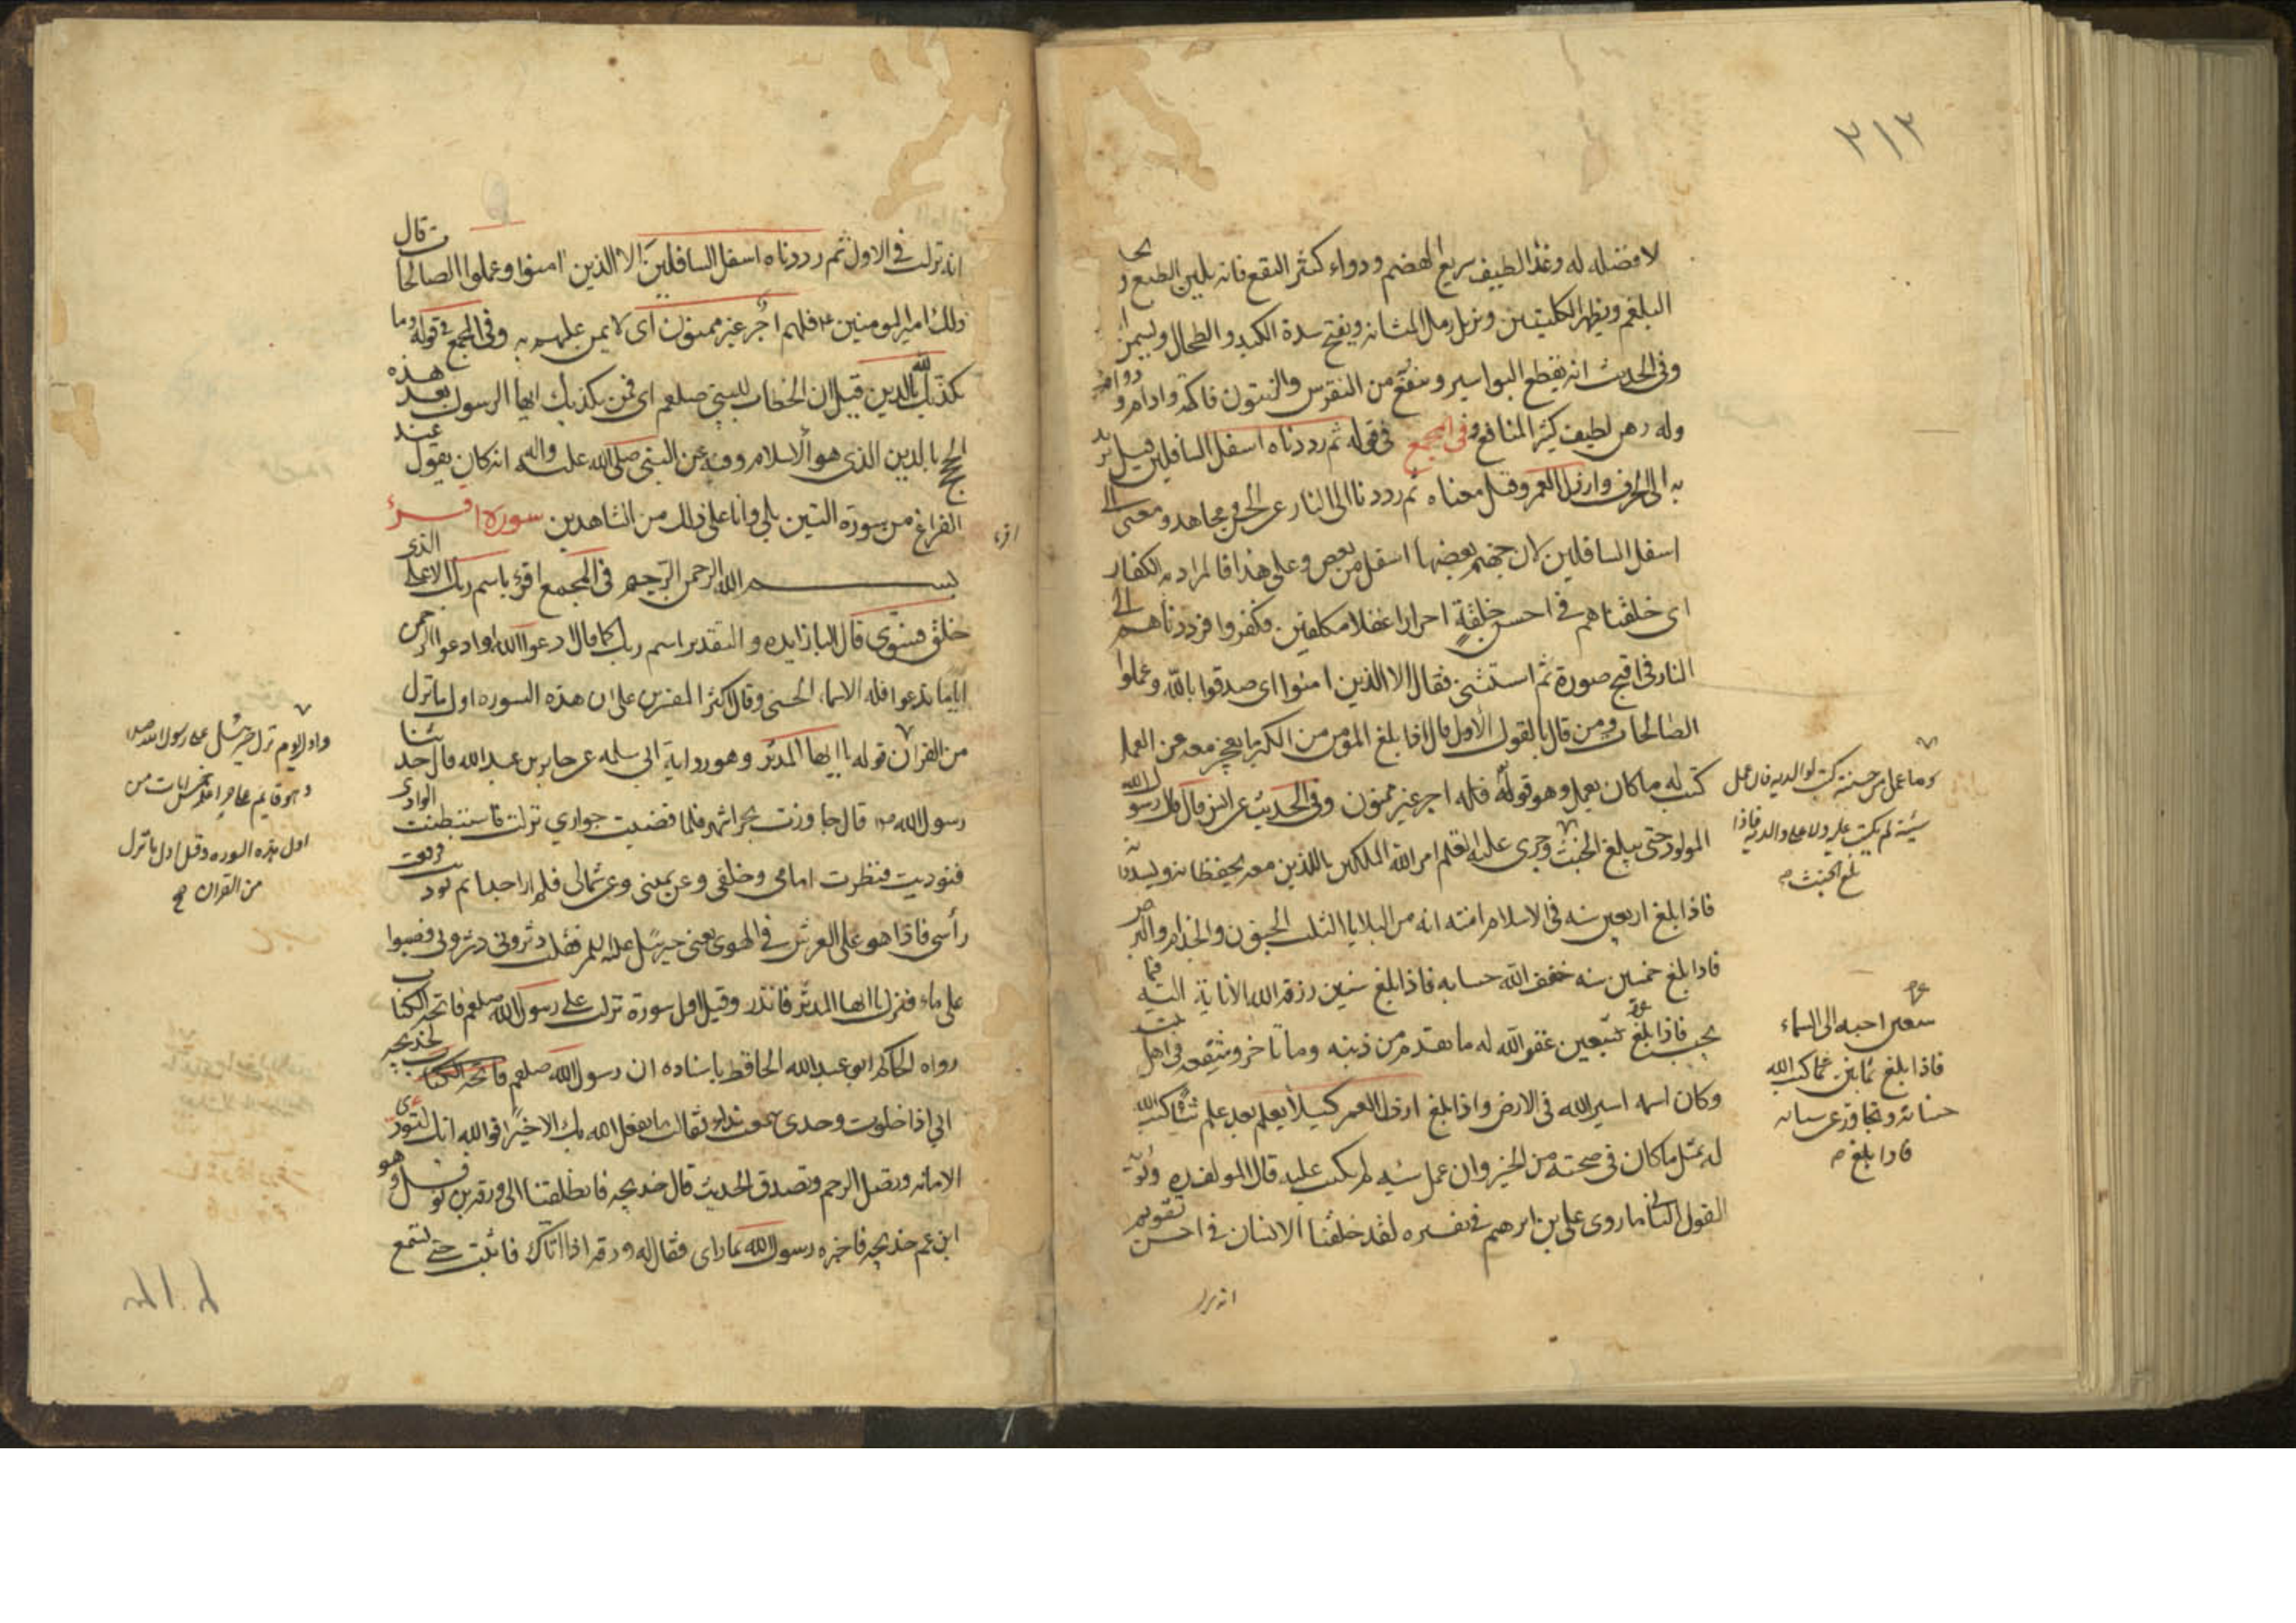 ٣١٣
لا فضل له وغذا لطيف سريع الهضم ودواء كثير النفع فانه يلين الطبع و يحا
البلغم ويطهر الكليتين ويزيل رمل المثانه ويفتح سدة الكبد والطحال ويسمن
وفى الحديث انه يقطع البواسير وينفع من النقرس والزيتون فاكهة وادام و دواء
وله دهن لطيف كثير المنافع وفى المجمع فى قوله ثم رددناه اسفل السافلين قيل يريد
به الى الخرف وارذل العمر وقيل معناه ثم رددناه الى النار عن الحسن ومجاهد ومعنى الى
اسفل السافلين لان جهنم بعضها اسفل من بعض وعلى هذا فالمراد به الكفار
اى خلقناهم فى احسن خلقة احرارا عقلا مكلفين فكفروا فرددناهم الى
النار فى اقبح صورة ثم استثنى فقال الا الذين امنوا اى صدقوا بالله وعملوا
الصالحات ومن قال بالقول الاول قال اذا بلغ المؤمن من الكبر ما يعجز معه عن العمل
كتب له ما كان يعمل وهو قوله فلهم اجر غير ممنون وفى الحديث عن انس قال قال رسول الله
المولود حتى يبلغ الحنث وجرى عليه القلم امر الله الملكين اللذين معه يحفظانه ويسددانه
فاذا بلغ اربعين سنه فى الاسلام امنه الله من البلايا الثلث الجنون والجذام والبرص
فاذا بلغ خمسين سنه خفف الله حسابه فاذا بلغ ستين رزقه الله الانابة اليه فيما
يحب فاذا بلغ تسعين غفر الله له ما تقدم من ذنبه وما تاخر وشفعه فى اهل بيته
وكان اسمه اسير الله فى الارض واذا بلغ ارذل العمر كيلا يعلم بعد علم شيئا كتب الله
له بمثل ما كان فى صحته من الخير وان عمل سيئه لم يكتب عليه قال المولف
القول الثانى ما روى على بن ابرهيم فى تفسيره لقد خلقنا الانسان فى احسن تقويم
انه نزلت
وما عمل من حسنة كتب لوالديه فان عمل
سيئة لم يكتب عليه ولا على والديه فاذا
بلغ الحنث
سبعين احبه اهل السماء
فاذا بلغ ثمانين سنة كتب الله
حسناته وتجاوز عن سيئاته
فاذا بلغ
انه نزلت فى الاول ثم رددناه اسفل السافلين الا الذين امنوا وعملوا الصالحات قال
ذلك امير المومنين فلهم اجر غير ممنون اى لا يمن عليهم به وفى المجمع فى قوله وما
يكذبك بالدين قيل ان الخطاب للنبى صلعم اى فمن يكذبك ايها الرسول بعد هذه
الحجج بالدين الذى هو الاسلام وفيه عن النبى صلى الله عليه واله انه كان يقول عند
الفراغ من سورة التين بلى وانا على ذلك من الشاهدين سورة اقرء
اقرء
بسم الله الرحمن الرحيم فى المجمع اقرء باسم ربك الاعلى الذى
خلق فسوى قال البا زايده والتقدير اسم ربك كما قال ادعوا الله او ادعوا الرحمن
اياما تدعوا فله الاسماء الحسنى وقال اكثر المفسرين على ان هذه السوره اول ما نزل
من القران قوله يا ايها المدثر وهو رواية ابى سلمه عن جابر بن عبد الله قال حدثنا
رسول الله ص قال جاوزت بحرا شهر فلما قضيت جوارى نزلت فاستبطنت الوادى
فنوديت فنظرت امامى وخلفى وعن يمينى وعن شمالى فلم ار احدا ثم نوديت فرفعت
رأسى فاذا هو على العرش فى الهوى يعنى جبرئيل عليه السلم فقلت دثرونى دثرونى فصبوا
على ماء فنزل يا ايها المدثر فانذر وقيل اول سورة نزلت على رسول الله صلعم فاتحة الكتاب
رواه الحاكم ابو عبد الله الحافظ باسناده ان رسول الله صلعم لخديجه
انى اذا خلوت وحدى سمعت نداء فقالت ما يفعل الله بك الا خيرا فوالله انك لتودى
الامانه وتصل الرحم وتصدق الحديث قال خديجه فانطلقنا الى ورقه بن نوفل وهو
ابن عم خديجه فاخبره رسول الله بما راى فقال له ورقه اذا اتاك فاثبت حتى تسمع
واول يوم نزل جبرئيل على رسول الله ص
وهو قايم على حرا علمه خمس ايات من
اول هذه السوره وقيل اول ما نزل
من القران